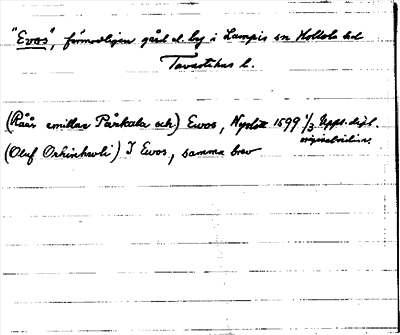 "Evos", förmodligen gård el. by i Lampis sn Hollola hd
Tavastehus l.
(Råår emillan Pärkala och) Ewos, Nyslott 1599 1/3 Upps. dipl.
originalvidim.
(Oluf Orhinhuoli) I Ewos, samma brev